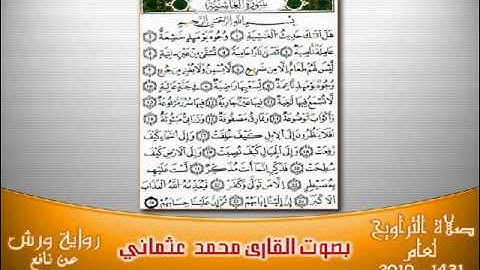 سورة الغاشية
بسم الله الرحمن الرحيم
هل أتاك حديث الغاشية وجوه يومئذ خاشعة
عاملة ناصبة تصلى نارا حامية تسقى من عين آنية
ليس لهم طعام إلا من ضريع لا يسمن ولا يغني من جوع
وجوه يومئذ ناعمة لسعيها راضية في جنة عالية
لا تسمع فيها لاغية فيها عين جارية فيها سرر مرفوعة
وأكواب موضوعة ونمارق مصفوفة وزرابي مبثوثة
أفلا ينظرون إلى الإبل كيف خلقت وإلى السماء كيف
رفعت وإلى الجبال كيف نصبت وإلى الأرض كيف
سطحت فذكر إنما أنت مذكر لست عليهم
بمصيطر إلا من تولى وكفر فيعذبه الله العذاب
الأكبر إن إلينا إيابهم ثم إن علينا حسابهم
صلاة التراويح
لعام
1431 - 2010
بصوت القارئ محمد عثماني
رواية ورش
عن نافع